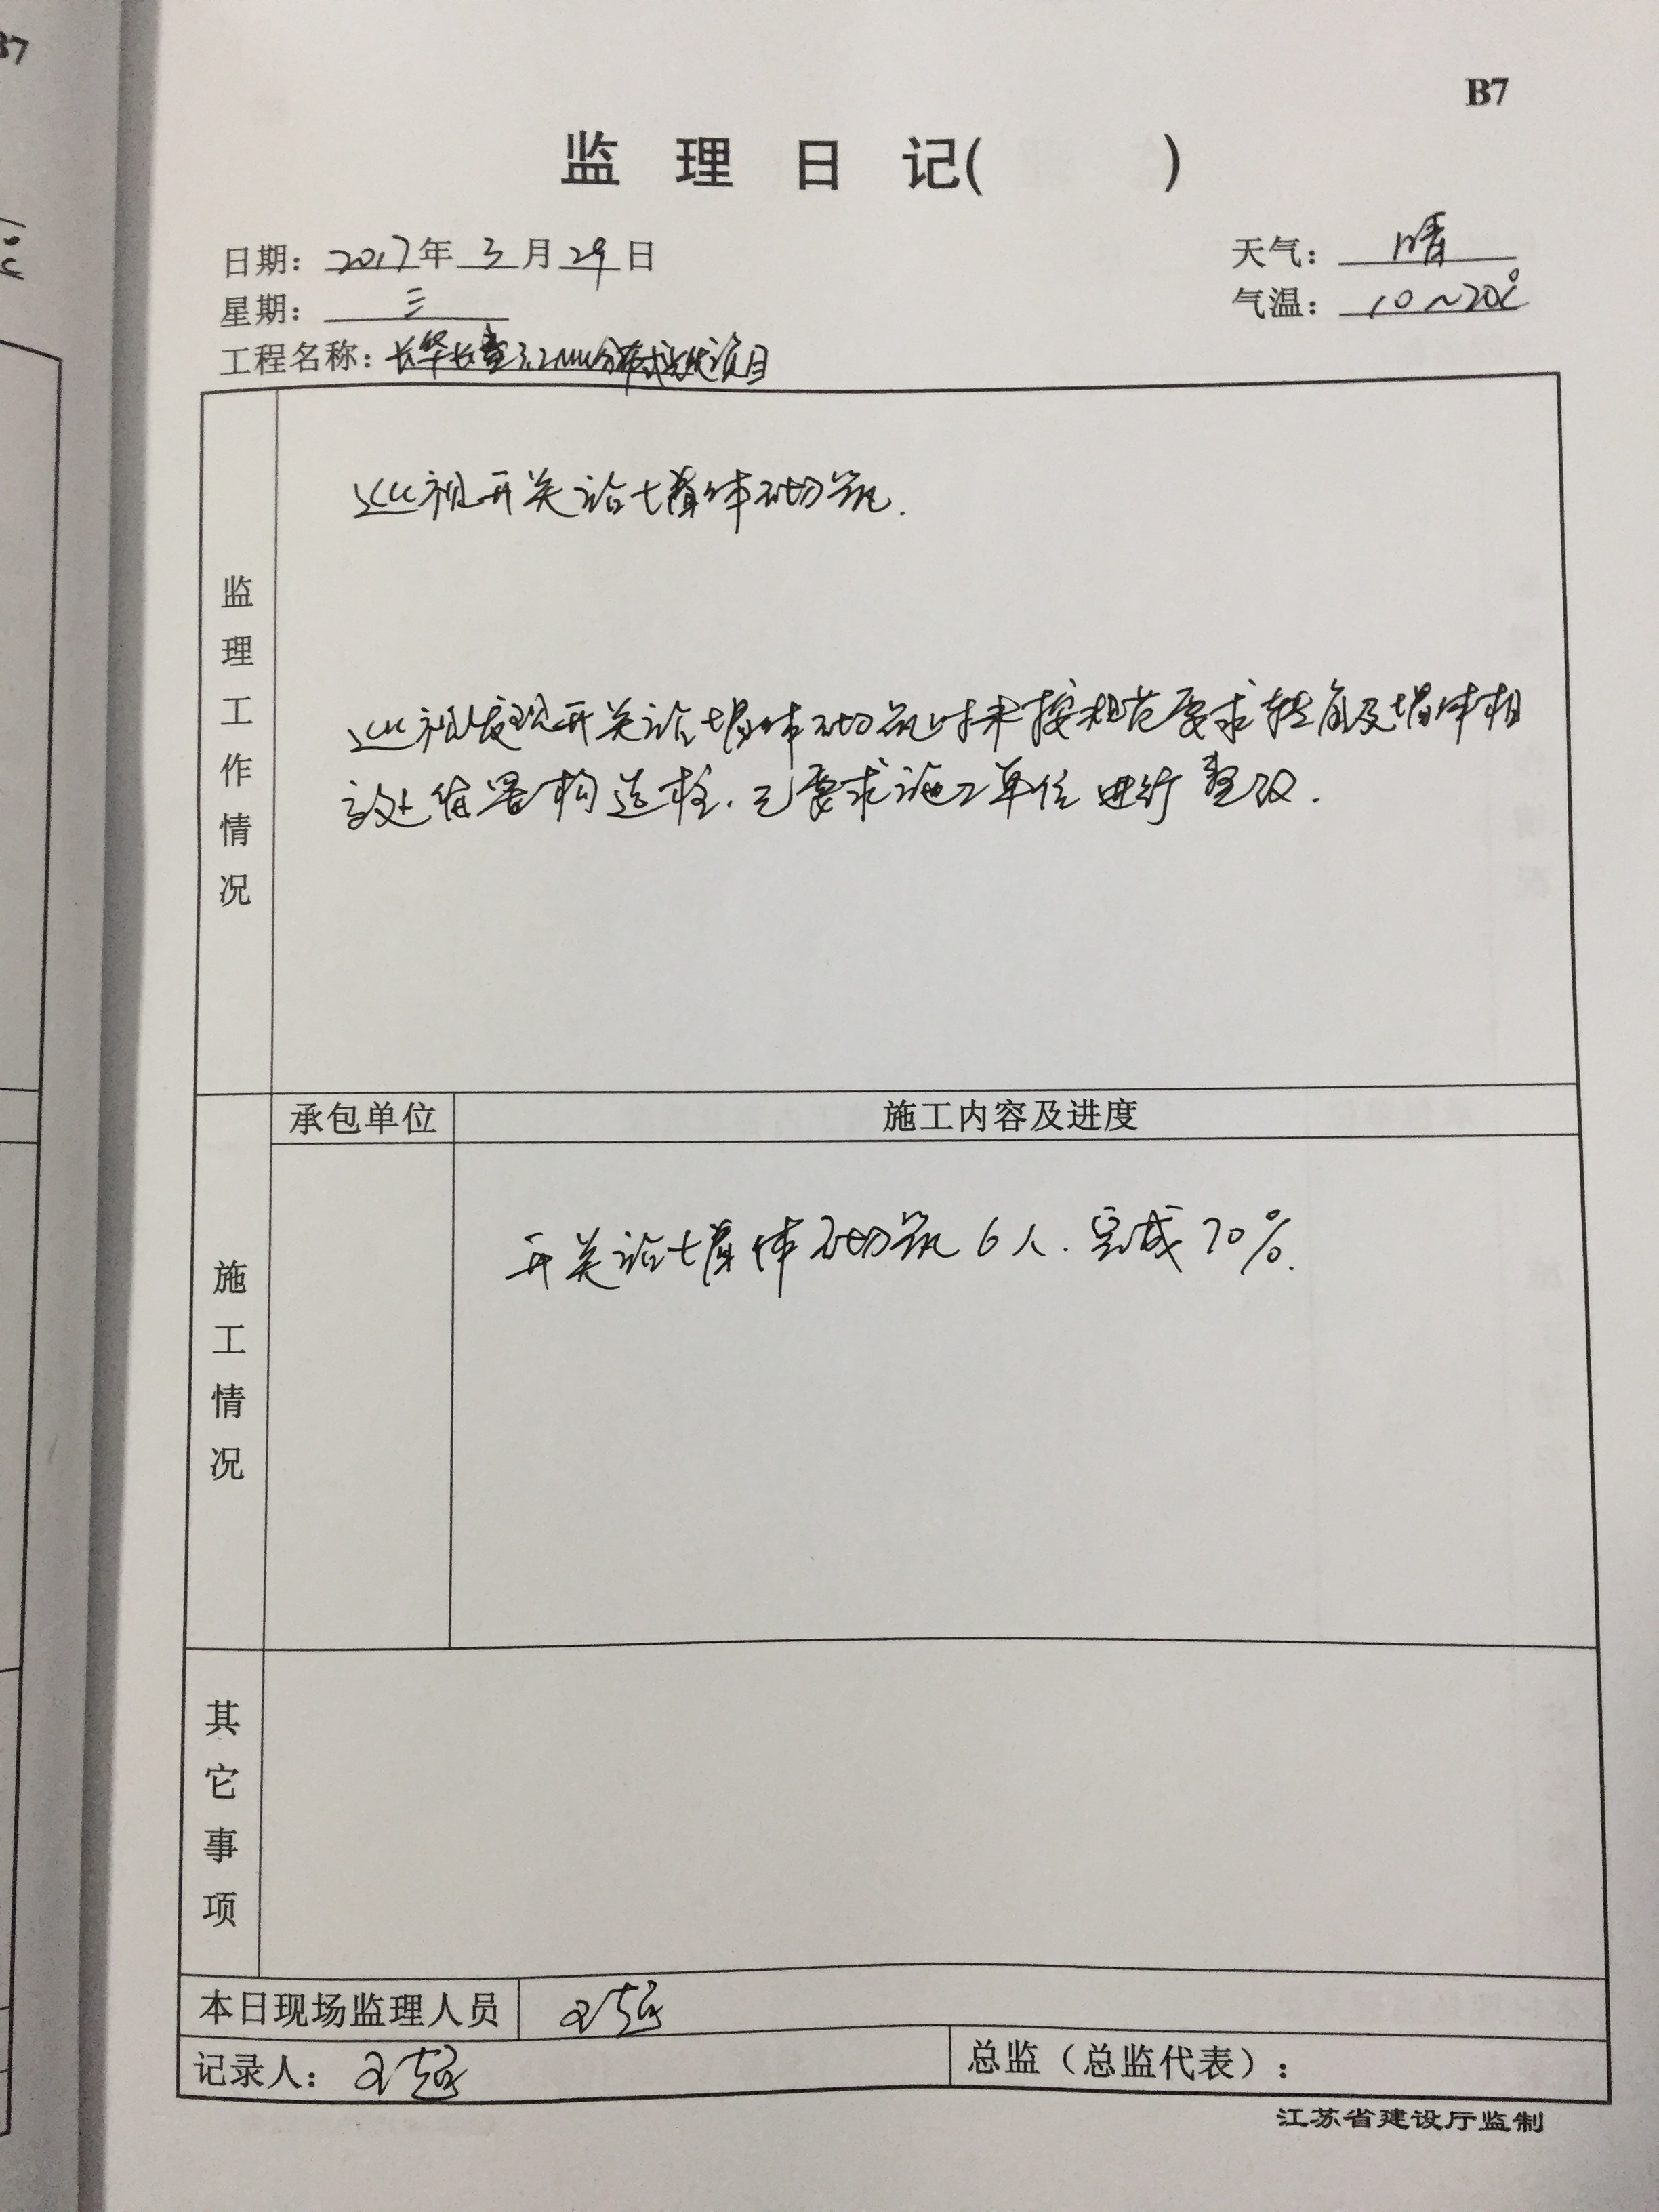 B7
监理日记( )
日期：2017年3月29日
天气：晴
星期：三
气温：10~20℃
工程名称：长华长青3.2MW分布式光伏项目
监理工作情况
巡视开关站墙体砌筑.
巡视发现开关站墙体砌筑时未按规范要求转角及墙体相
交处留置构造柱.已要求施工单位进行整改.
施工情况
承包单位
施工内容及进度
开关站墙体砌筑6人.完成70%.
其它事项
本日现场监理人员
记录人：
总监（总监代表）：
江苏省建设厅监制